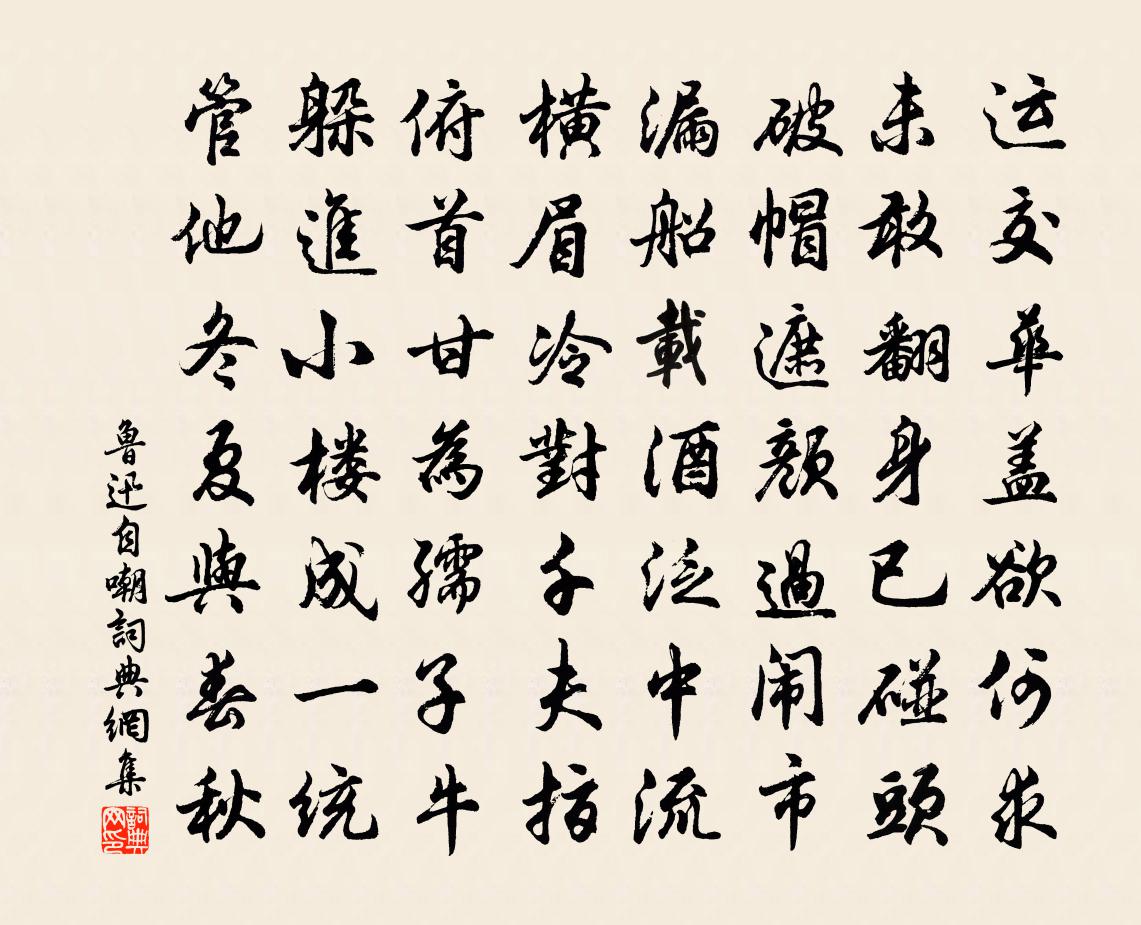 运交華盖欲何求
未敢翻身已碰頭
破帽遮颜過闹市
漏船載酒泛中流
横眉冷對千夫指
俯首甘為孺子牛
躲進小楼成一统
管他冬夏與春秋
魯迅自嘲詞典網集
詞典网印